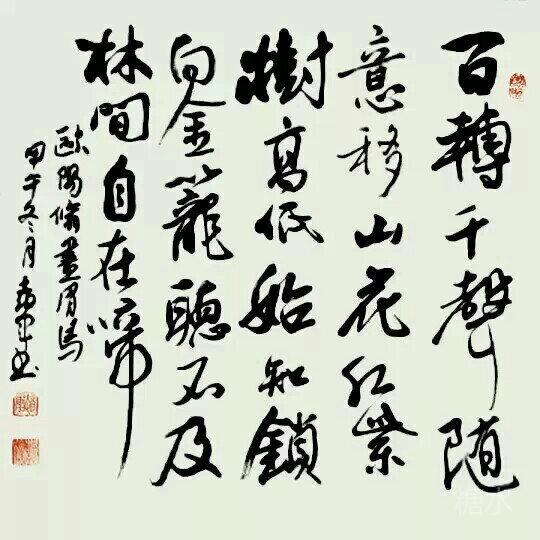 百轉千聲随
意移山花红紫
樹高低始知鎖
向金籠聽不及
林間自在啼
歐陽脩畫眉鳥
甲午冬月书
糖水